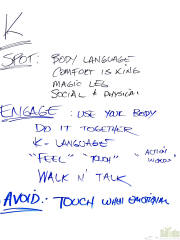 K
SPOT: BODY LANGUAGE
COMFORT IS KING
MAGIC LEG
SOCIAL & PHYSICAL
ENGAGE: USE YOUR BODY
DO IT TOGETHER
K-LANGUAGE
"FEEL" "TOUCH" "ACTION WORDS"
WALK N' TALK
AVOID: TOUCH WHEN EMOTIONAL